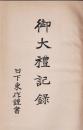 御大禮記録
日下東作謹書